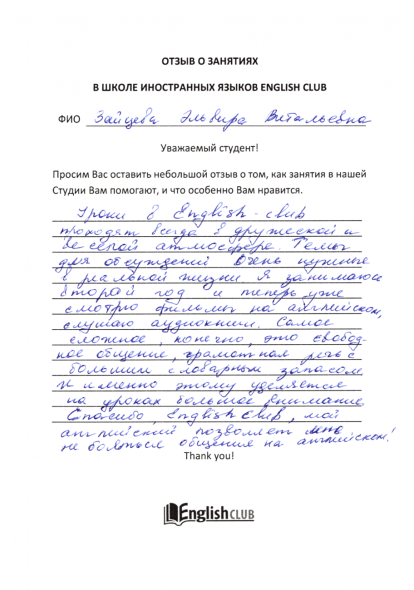 ОТЗЫВ О ЗАНЯТИЯХ
В ШКОЛЕ ИНОСТРАННЫХ ЯЗЫКОВ ENGLISH CLUB
ФИО Зайцева Эльвира Витальевна
Уважаемый студент!
Просим Вас оставить небольшой отзыв о том, как занятия в нашей
Студии Вам помогают, и что особенно Вам нравится.
Уроки в English-club
проходят всегда в дружеской и
веселой атмосфере. Темы
для обсуждений очень нужные
в реальной жизни. Я занимаюсь
второй год и теперь уже
смотрю фильмы на английском,
слушаю аудиокниги. Самое
сложное, конечно, это свобод-
ное общение, грамотная речь с
большим словарным запасом.
И именно этому уделяется
на уроках большое внимание.
Спасибо, English Club, мой
английский позволяет мне
не бояться общения на английском!
Thank you!
English CLUB